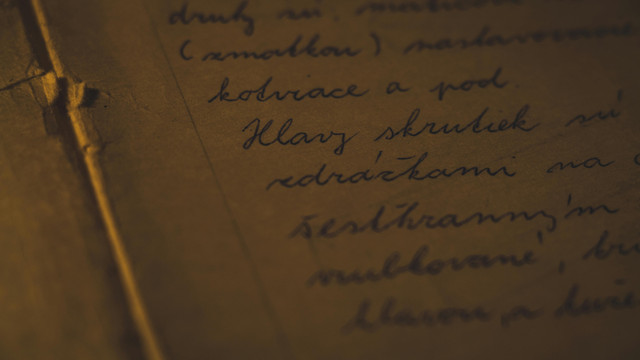 druhy sú,
(zmatkou) nastavovacie
kotviace a pod
Hlavy skrutiek sú
zdrážkami na
šesťhranným
vrubkované,
hlavou, a